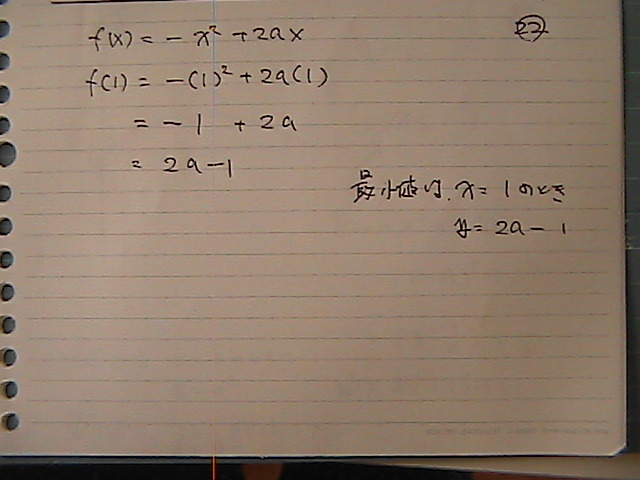 ㉗
f(x) = - x² + 2ax
f(1) = -(1)² + 2a(1)
= - 1 + 2a
= 2a - 1
最小値は、x = 1 のとき
y = 2a - 1